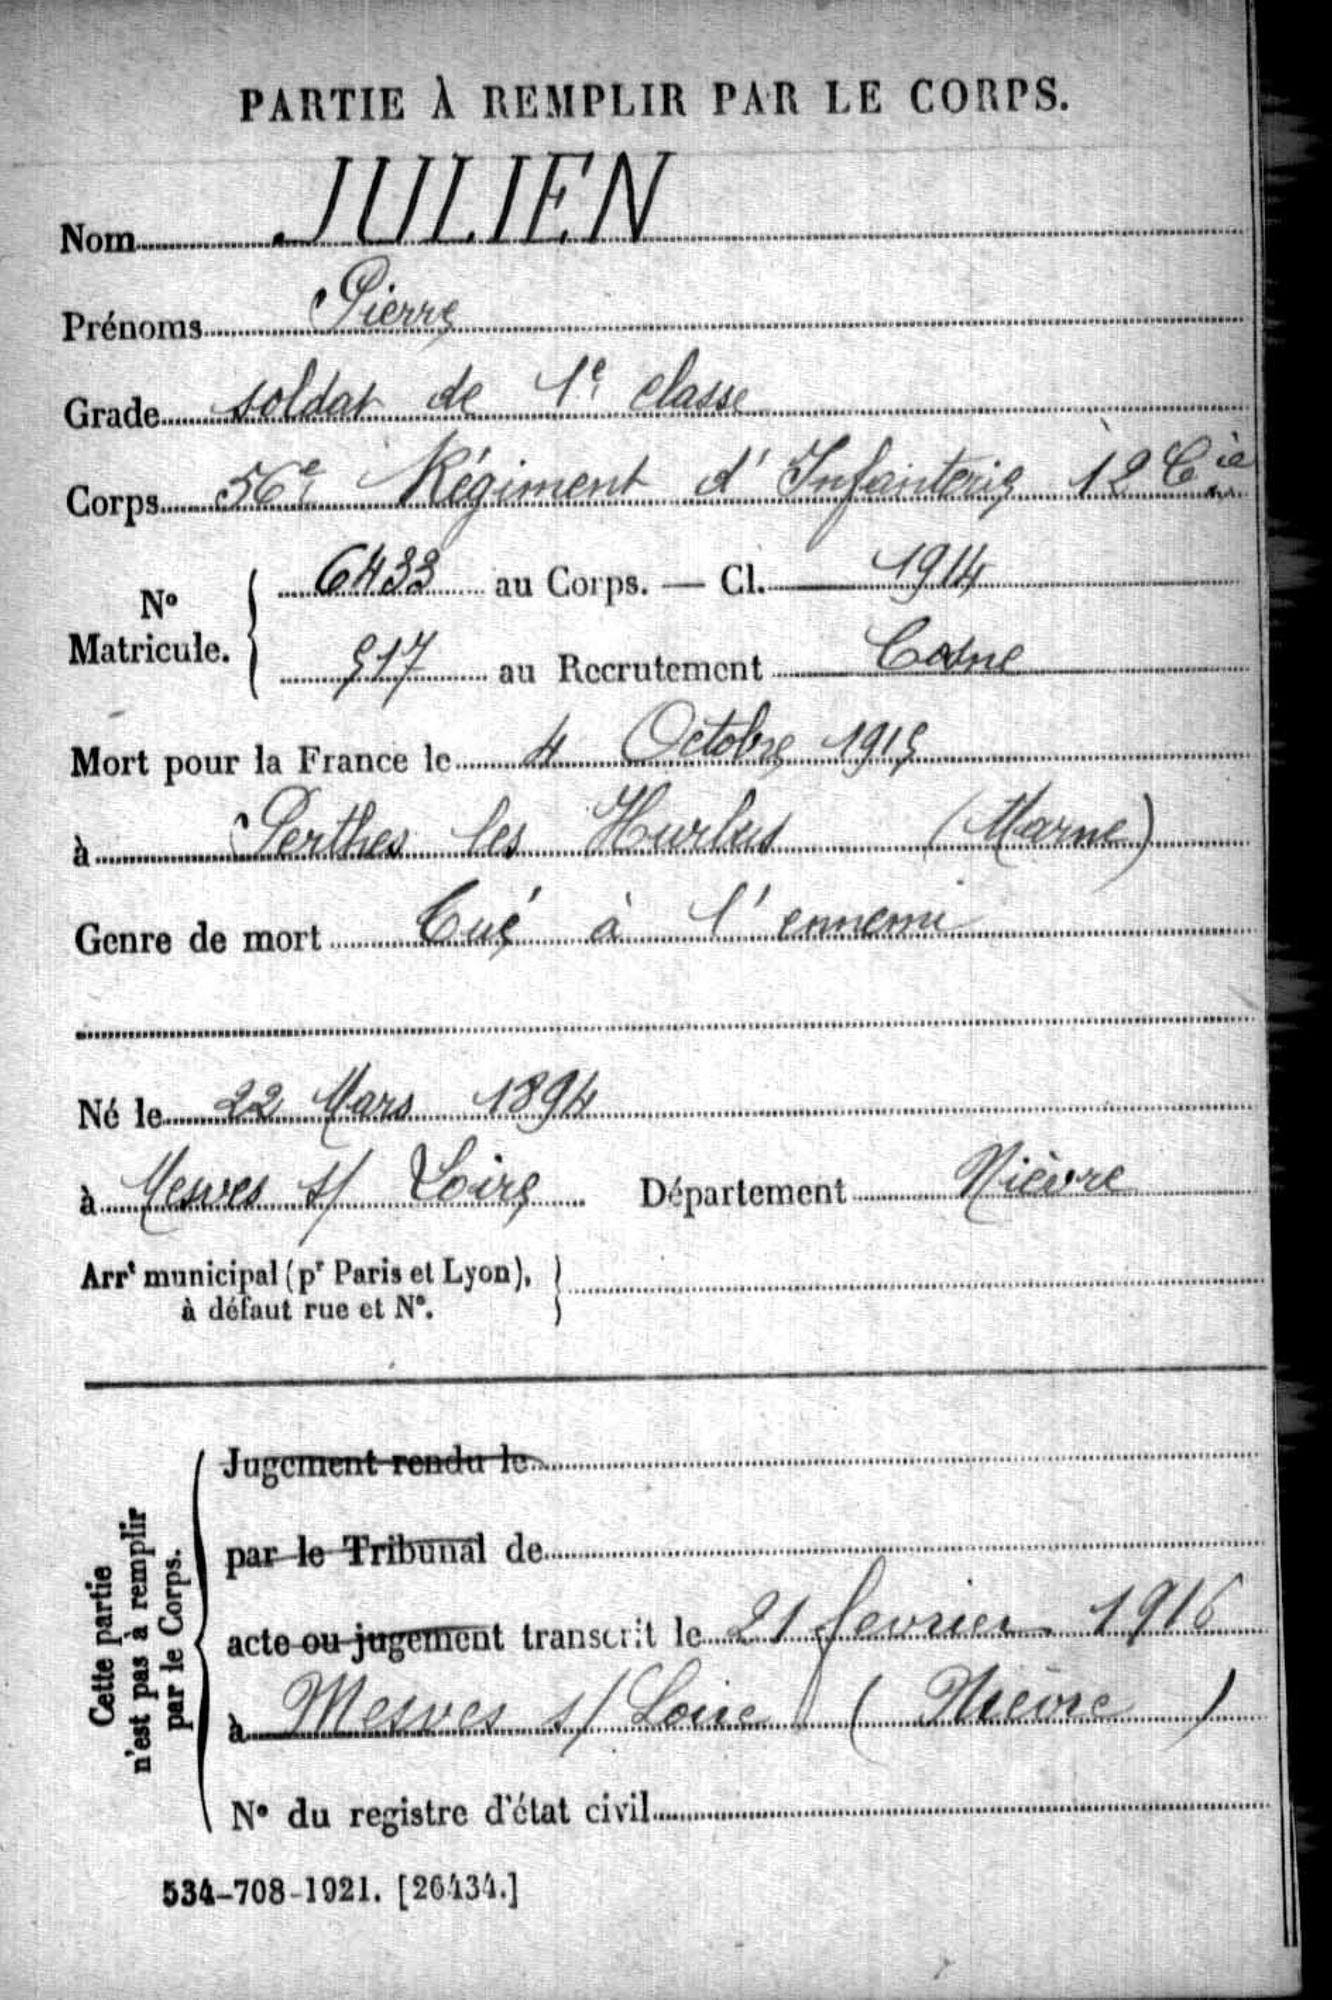 PARTIE À REMPLIR PAR LE CORPS.
Nom JULIEN
Prénoms Pierre
Grade soldat de 1e classe
Corps 56e Régiment d'Infanterie 12 Cie
No Matricule. 6433 au Corps. — Cl. 1914
517 au Recrutement Cosne
Mort pour la France le 4 Octobre 1915
à Perthes les Hurlus (Marne)
Genre de mort Tué à l'ennemi
Né le 22 Mars 1894
à Mesves s/ Loire Département Nièvre
Arrt municipal (pr Paris et Lyon),
à défaut rue et No.
Cette partie
n'est pas à remplir
par le Corps.
Jugement rendu le
par le Tribunal de
acte ou jugement transcrit le 21 fevrier 1916
à Mesves s/ Loire (Nièvre)
No du registre d'état civil
534-708-1921. [26434.]